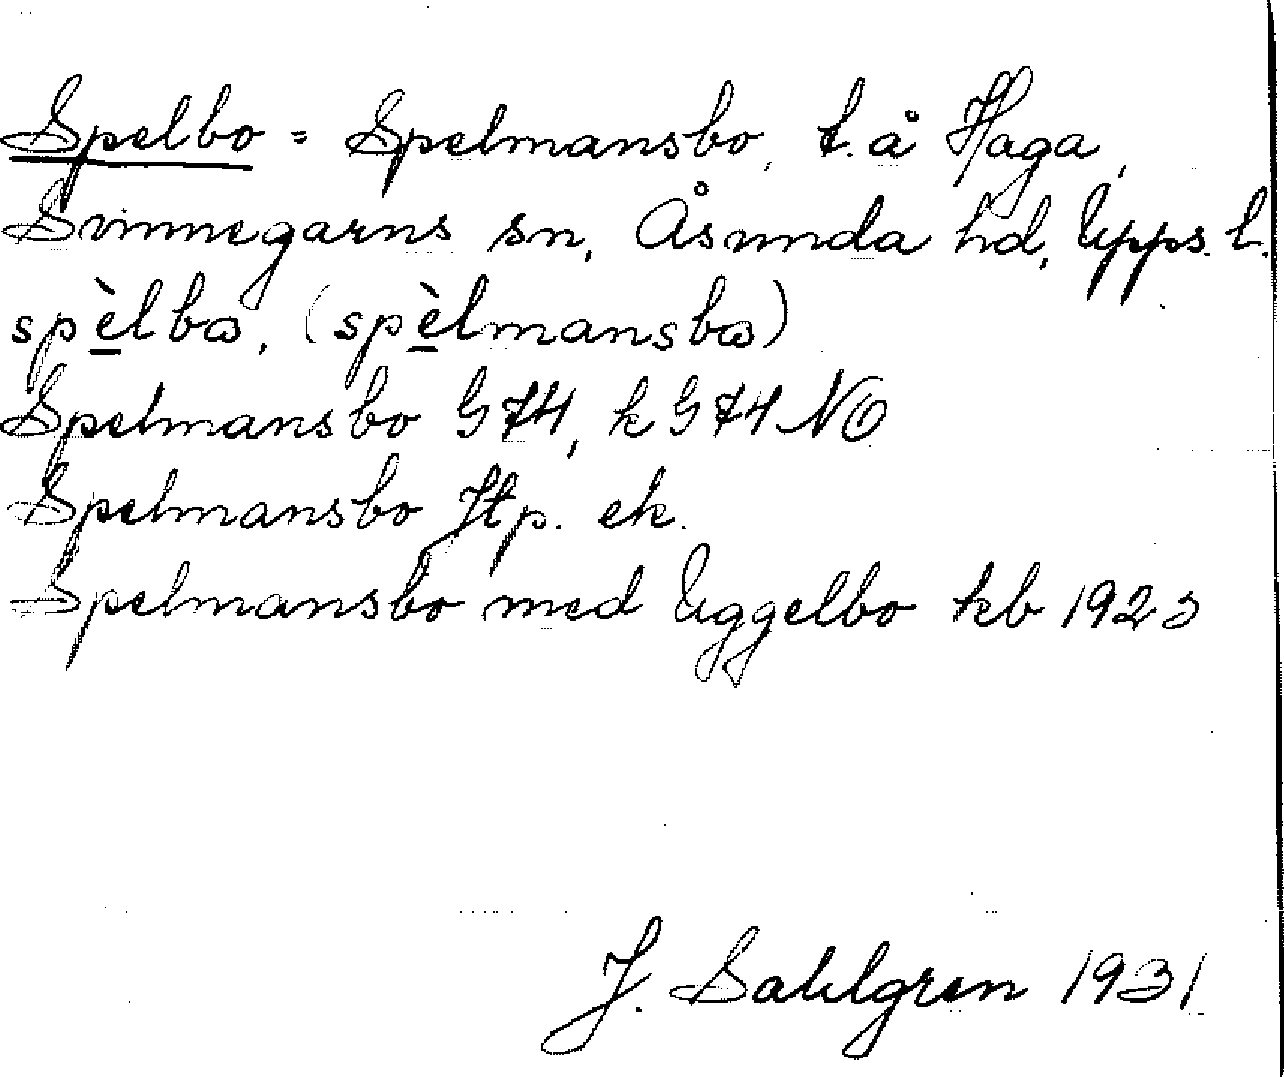 Spelbo = Spelmansbo, t. å Haga,
Svinnegarns sn, Åsunda hd, Upps. l.
spèlbω, (spèlmansbω)
Spelmansbo G 74, k G 74 NO
Spelmansbo Jtp. ek.
Spelmansbo med Uggelbo kb 1923
J. Sahlgren 1931